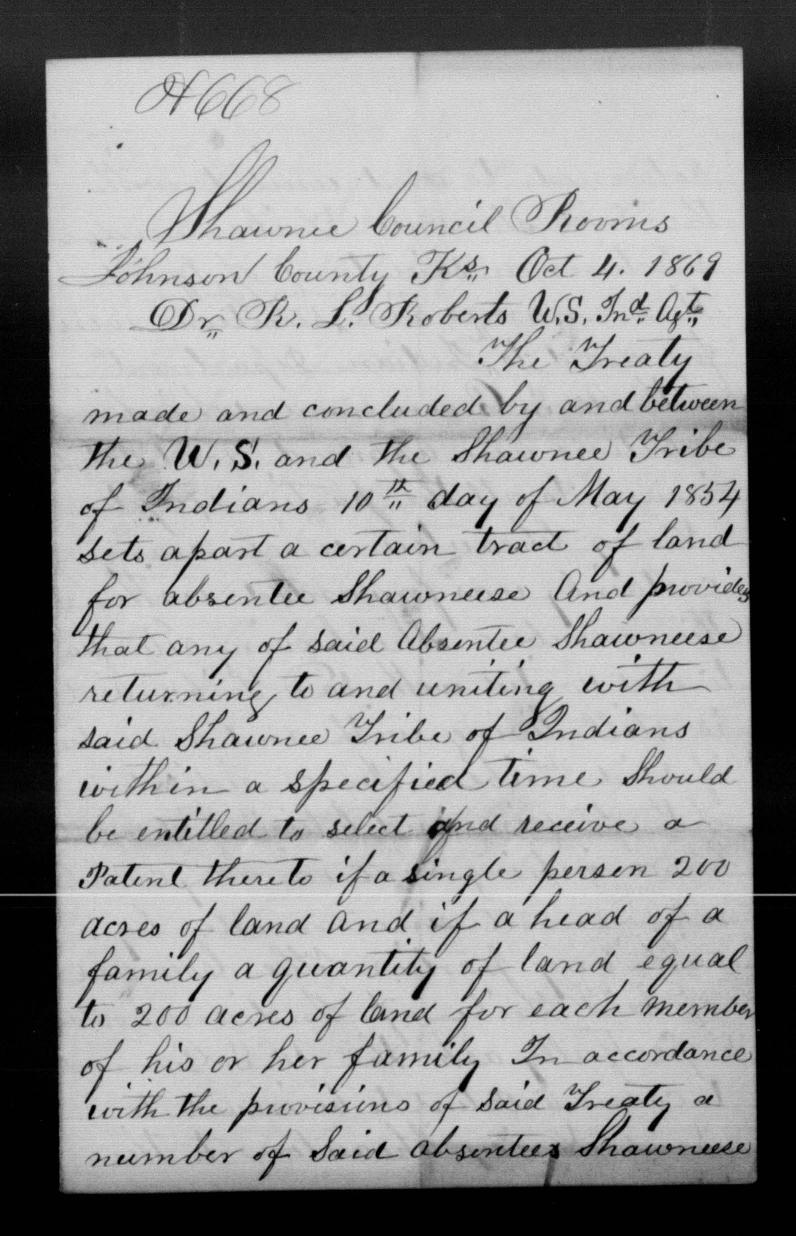 H668
Shawnee Council Rooms
Johnson County Ks. Oct 4. 1869
Dr. R. L. Roberts U.S. Ind. Agt.
The Treaty
made and concluded by and between
the U.S. and the Shawnee Tribe
of Indians 10th day of May 1854
sets apart a certain tract of land
for absentee Shawneese And provides
that any of said Absentee Shawneese
returning to and uniting with
said Shawnee Tribe of Indians
within a specified time should
be entitled to select and receive a
Patent thereto if a single person 200
acres of land and if a head of a
family a quantity of land equal
to 200 acres of land for each member
of his or her family In accordance
with the provisions of said Treaty a
number of Said absentees Shawneese